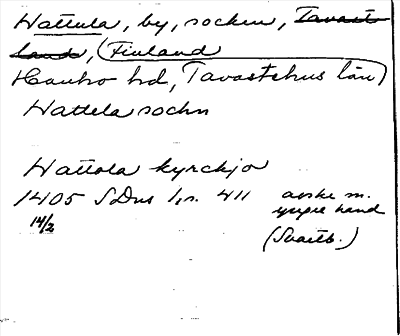 Hattula, by, socken, Tavast-
land, (Finland
Hauho hd, Tavastehus län)
Hattela sochn
Hattola kyrckjo
1405 SDns 1, s. 411 avskr. m.
14/2 yngre hand
(Svartb.)